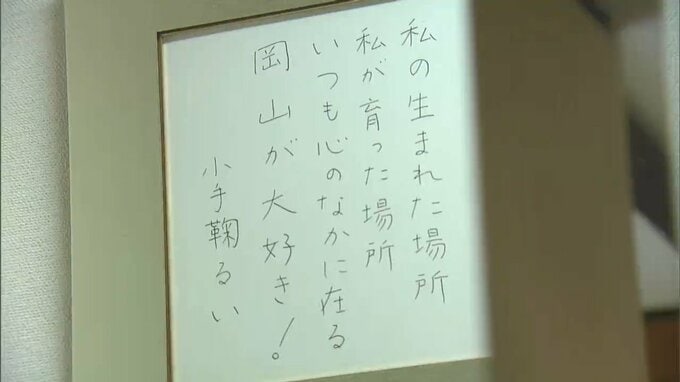 私の生まれた場所
私が育った場所
いつも心のなかに在る
岡山が大好き!
小手鞠るい